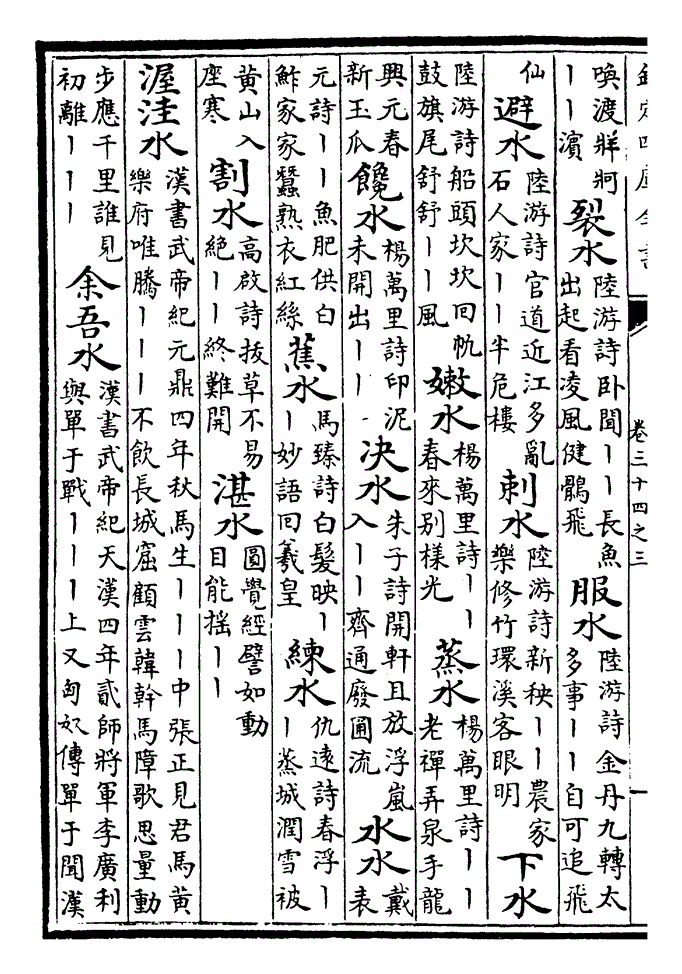 欽定四庫全書 卷三十四之三
喚渡牂牁｜｜濵 裂水 陸游詩卧聞｜｜長魚出起看凌風健鶻飛 服水 陸游詩金丹九轉太多事｜｜自可追飛
仙 避水 陸游詩官道近江多亂石人家｜｜半危樓 刺水 陸游詩新秧｜｜農家樂修竹環溪客眼明 下水
陸游詩船頭坎坎回帆鼓旗尾舒舒｜｜風 嫩水 楊萬里詩｜｜春來别樣光 蒸水 楊萬里詩｜｜老禪弄泉手龍
興元春新玉爪 饞水 楊萬里詩印泥未開出｜｜ 决水 朱子詩開軒且放浮嵐入｜｜齊通廢圃流 水水 戴表
元詩｜｜魚肥供白鮓家家蠶熟衣紅絲 蕉水 馬臻詩白髮映｜｜妙語回羲皇 練水 仇遠詩春浮｜｜蒸城潤雪被
黄山入座寒 割水 高啟詩拔草不易絶｜｜終難開 湛水 圓覺經譬如動目能揺｜｜
渥洼水 漢書武帝紀元鼎四年秋馬生｜｜｜中張正見君馬黄樂府唯騰｜｜｜不飲長城窟顧雲韓幹馬障歌思量動
步應千里誰見初離｜｜｜ 余吾水 漢書武帝紀天漢四年貳師將軍李廣利與單于戰｜｜｜上又匈奴傳單于聞漢